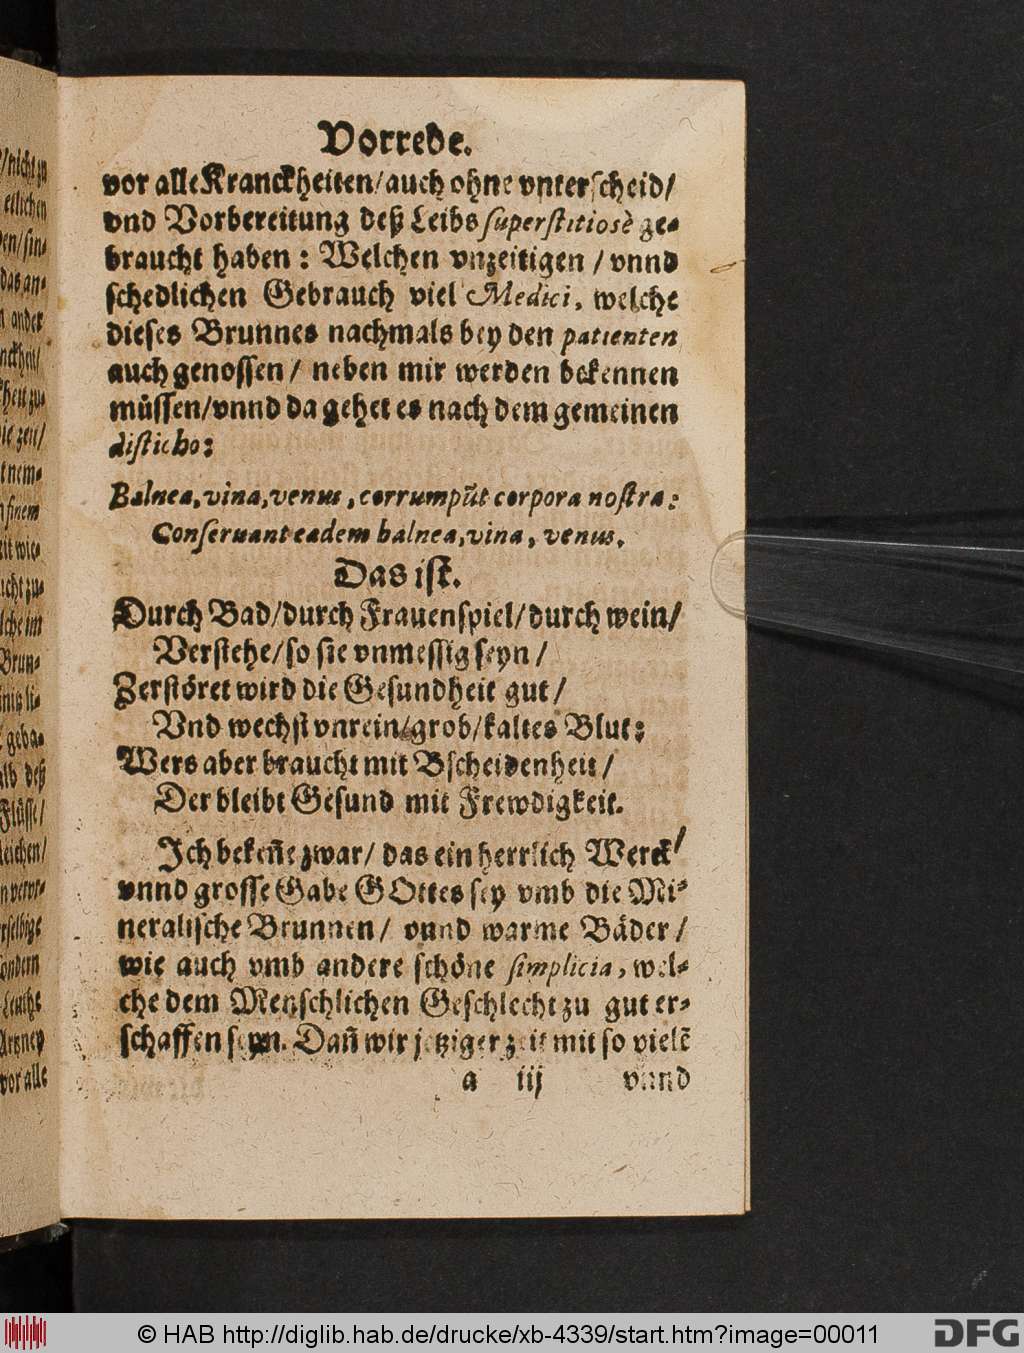 Vorrede.
vor alle Kranckheiten/auch ohne vnterscheid/
vnd Vorbereitung deß Leibs superstitiosè ge-
braucht haben : Welchen vnzeitigen / vnnd
schedlichen Gebrauch viel Medici, welche
dieses Brunnes nachmals bey den patienten
auch genossen / neben mir werden bekennen
müssen/vnnd da gehet es nach dem gemeinen
disticho:
Balnea, vina, venus, corrumpũt corpora nostra:
Conseruant eadem balnea, vina, venus.
Das ist.
Durch Bad/durch Frauenspiel/durch wein/
Verstehe/so sie vnmessig seyn /
Zerstöret wird die Gesundheit gut /
Vnd wechst vnrein/grob/kaltes Blut:
Wers aber braucht mit Bscheidenheit /
Der bleibt Gesund mit Frewdigkeit.
Ich bekeñe zwar/ das ein herrlich Werck/
vnnd grosse Gabe GOttes sey vmb die Mi-
neralische Brunnen / vnnd warme Bäder /
wie auch vmb andere schöne simplicia, wel-
che dem Menschlichen Geschlecht zu gut er-
schaffen seyn. Dañ wir jetziger zeit mit so vielẽ
a iij vnnd
nicht zu
etlichen
das an-
ander
finem
Brun-
geba-
alb deß
Flüsse/
leichen/
sondern
Leuthe
Artzney
vor alle
© HAB http://diglib.hab.de/drucke/xb-4339/start.htm?image=00011
DFG